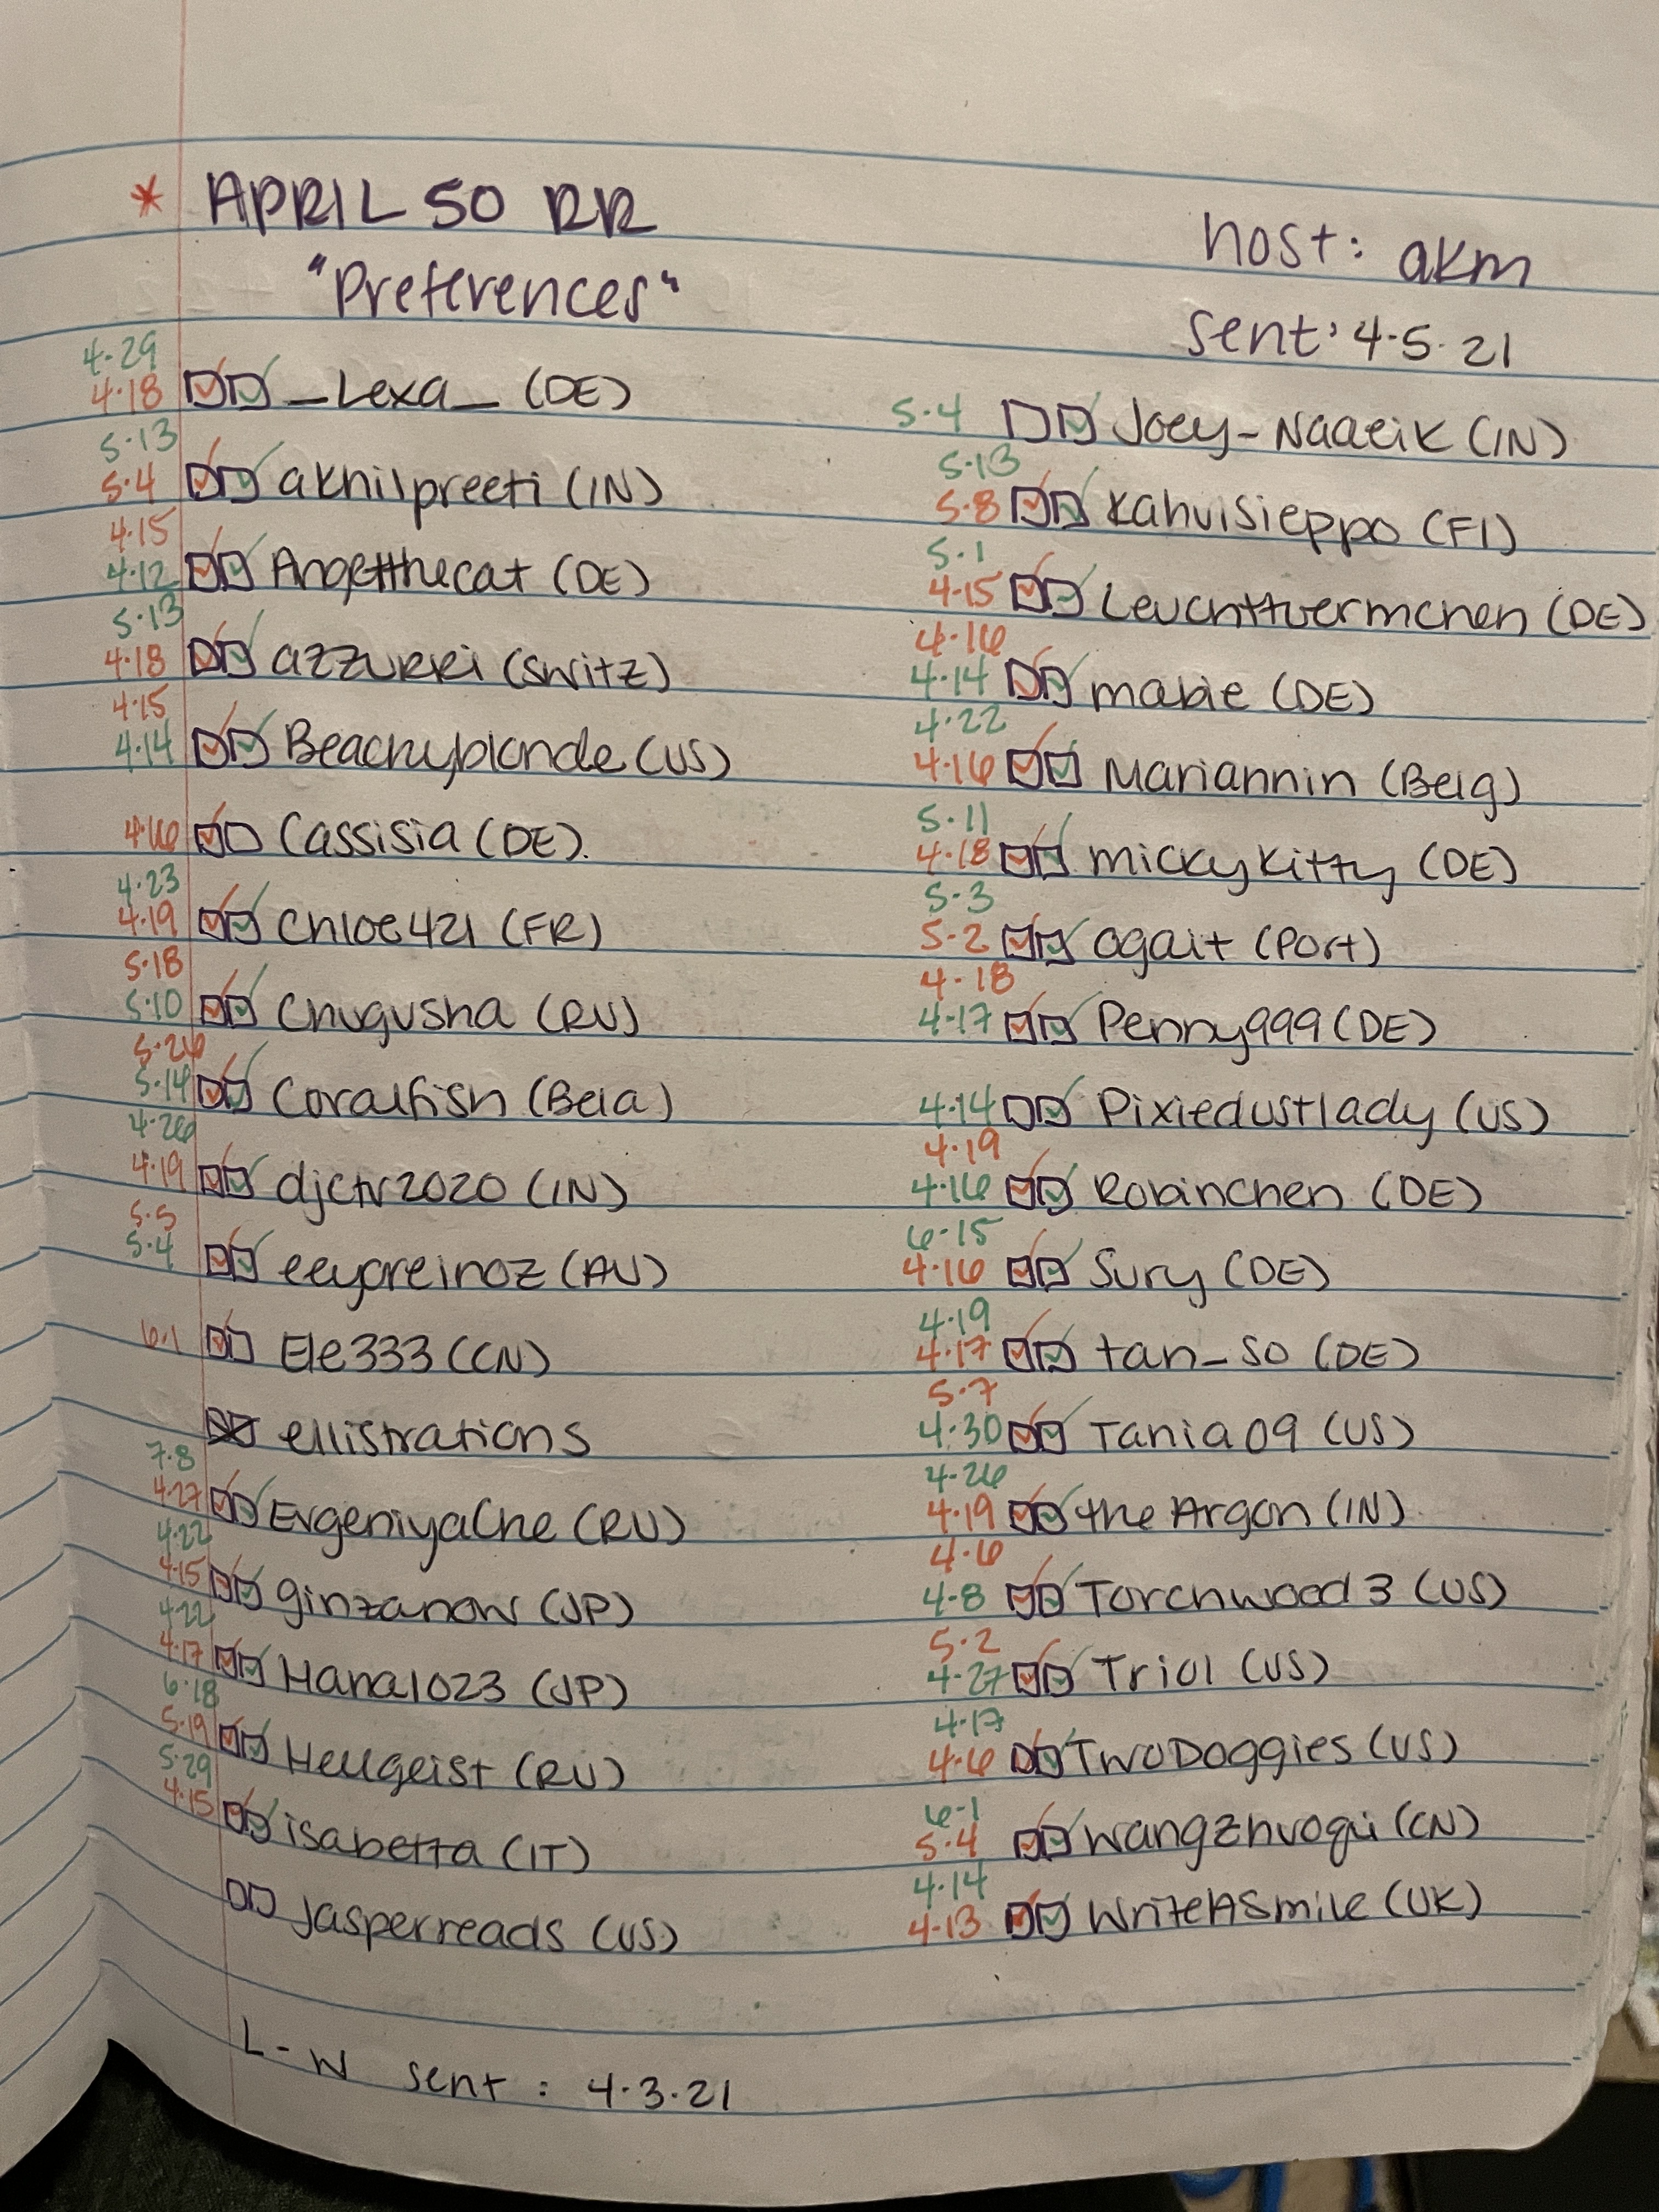 * APRIL 50 RR
"Preferences"
host: akm
sent: 4.5.21
4.29
4.18 _Lexa_ (DE)
5.13
5.4 akhilpreeti (IN)
4.15
4.12 Angelthecat (DE)
5.13
4.18 azzurri (Switz)
4.15
4.14 Beachyblonde (US)
4.16 Cassisia (DE).
4.23
4.19 Chloe421 (FR)
5.18
5.10 Chugusha (RU)
5.26
5.14 Coralfish (Bela)
4.26
4.19 djctv2020 (IN)
5.5
5.4 eeyoreinoz (AU)
6.1 Ele333 (CN)
ellistrations
7.8
4.27 EvgeniyaChe (RU)
4.22
4.15 ginzanow (JP)
4.22
4.17 Hana1023 (JP)
6.18
5.19 Hellgeist (RU)
5.29
4.15 isabetta (IT)
Jasperreads (US)
5.4 Joey_Naaeik (IN)
5.13
5.8 Kahvisieppo (FI)
5.1
4.15 (DE)
4.16
4.14 mabie (DE)
4.22
4.16 Mariannin (Belg)
5.11
4.18 mickykitty (DE)
5.3
5.2 ogait (Port)
4.18
4.17 Penny999 (DE)
4.14 Pixiedustlady (US)
4.19
4.16 Robinchen (DE)
6.15
4.16 Sury (DE)
4.19
4.17 tan_so (DE)
5.7
4.30 Tania09 (US)
4.26
4.19 the Argon (IN)
4.6
4.8 Torchwood3 (US)
5.2
4.27 Triol (US)
4.17
4.6 TwoDoggies (US)
6.1
5.4 wangzhuoqi (CN)
4.14
4.13 WriteASmile (UK)
L-W sent: 4.3.21